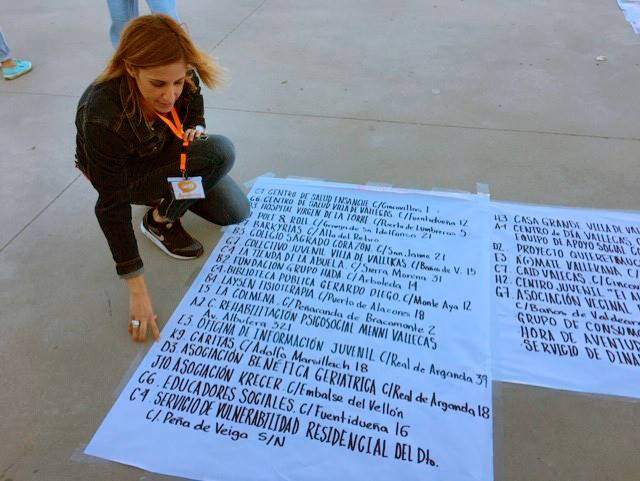 C9 CENTRO DE SALUD ENSANCHE C/Cincovillas 1
C6 CENTRO DE SALUD VILLA DE VALLECAS C/Fuentidueña 12
HOSPITAL VIRGEN DE LA TORRE C/Puerto de Lumbreras 5
POLE & ROLL C/Granja de San Ildefonso 21
BARKYRIAS C/Alto del Retiro
COLEGIO SAGRADO CORAZÓN C/San Jaime 21
COLECTIVO JUVENIL VILLA DE VALLECAS C/Baños de V. 15
LA TIENDA DE LA ABUELA C/Sierra Morena 31
FUNDACIÓN GRUPO HADA C/Arboleda 14
BIBLIOTECA PÚBLICA GERARDO DIEGO C/Monte Aya 12
LAYSEN FISIOTERAPIA C/Puerto de Alazores 18
LA COLMENA C/Peñaranda de Bracamonte 2
A2 C. REHABILITACIÓN PSICOSOCIAL MENNI VALLECAS
Av. Albufera 321
E3 OFICINA DE INFORMACIÓN JUVENIL C/Real de Arganda 39
K9 CARITAS C/Adolfo Marsillach 18
D3 ASOCIACIÓN BENÉTICA GERIATRICA C/Real de Arganda 18
J10 ASOCIACIÓN KRECER. C/Embalse del Vellón
C6. EDUCADORES SOCIALES. C/Fuentidueña 16
C4 SERVICIO DE VULNERABILIDAD RESIDENCIAL DEL Dto.
C/ Peña de Veiga S/N
H3 CASA GRANDE VILLA DE VAL
CENTRO de DÍA VALLECAS
EQUIPO DE APOYO SOCIAL
D2 PROYECTO QUIERETUR
VALLEKANA
C7 CAID VALLECAS C/Cincov
H2 CENTRO JUVENIL "EL
G7 ASOCIACIÓN VECINAL
C/Baños de Valde
GRUPO DE CONSUM
HORA DE AVENTUR
SERVICIO DE DIN